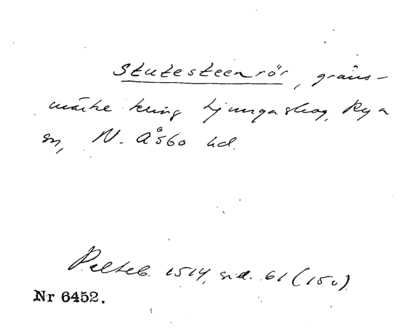 Stutesteenrör, gräns-
märke kring Ljungaskog, Rya
sn, N. Åsbo hd.
Palteb. 1514, sid. 61 (150)
Nr 6452.